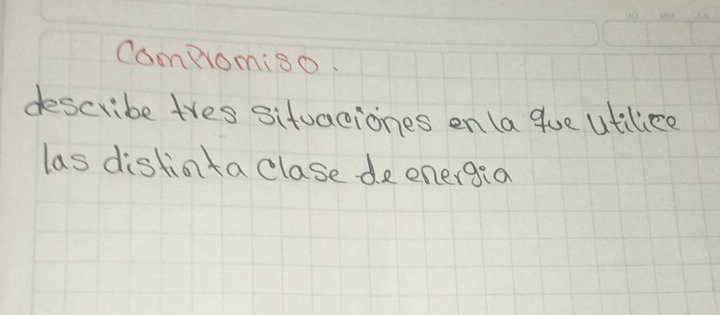 Compromiso.
describe tres situaciones en la que utilice
las distinta clase de energia